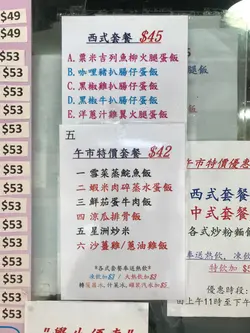 $49
$49
$53
$53
$53
$53
$53
$53
$53
$53
$53
$53
$53
西式套餐 $45
A.粟米吉列魚火腿蛋飯
B.咖喱豬扒腸仔蛋飯
C.黑椒雞扒腸仔蛋飯
D.黑椒牛扒腸仔蛋飯
E.洋蔥汁雞翼火腿蛋飯
五
午市特價套餐 $42
一 雪菜蒸鯇魚飯
二 蝦米肉碎蒸水蛋飯
三 鮮茄蛋牛肉飯
四 涼瓜排骨飯
五 星洲炒米
六 沙薑雞/蔥油雞飯
*各式套餐奉送熱飲*
凍飲加$3 / 大熱飲加$3
午市特價優惠
西式套餐
中式套餐
各式炒粉麵飯
奉送熱飲, 凍飲
特飲加
優惠時段:
由上午11時至下午